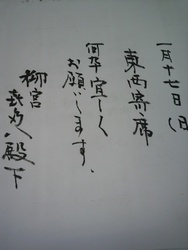 一月十七日(日)
東西寄席
何卒宜しく
お願いします、
柳宮
殿下